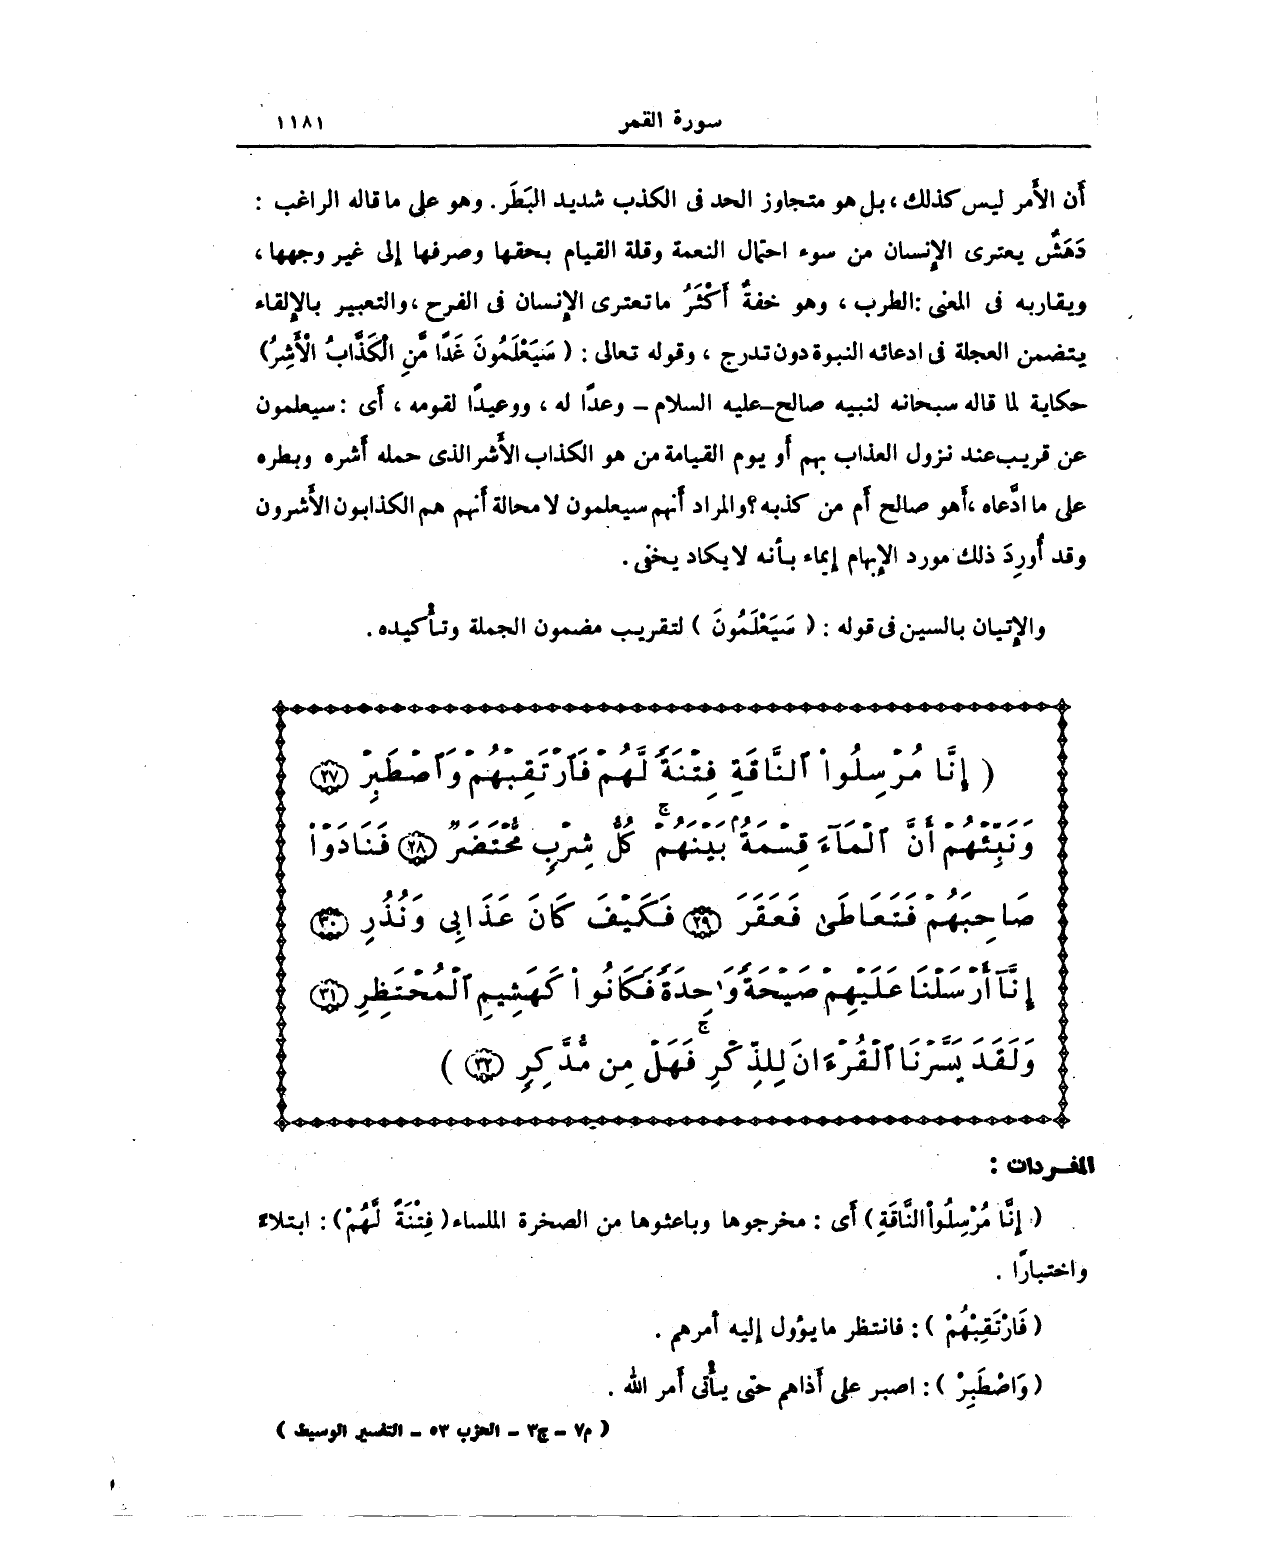 سورة القمر ١١٨١
أن الأَمر ليس كذلك ، بل هو متجاوز الحد فى الكذب شديد البَطَر . وهو على ما قاله الراغب :
دَهَشٌ يعترى الإنسان من سوء احتمال النعمة وقلة القيام بحقها وصرفها إلى غير وجهها ،
ويقاربه فى المعنى : الطرب ، وهو خفةٌ أَكْثَرُ ما تعترى الإنسان فى الفرح ، والتعبير بالإلقاء
يتضمن العجلة فى ادعائه النبوة دون تدرج ، وقوله تعالى : ( سَيَعْلَمُونَ غَدًا مَّنِ الْكَذَّابُ الْأَشِرُ )
حكاية لما قاله سبحانه لنبيه صالح - عليه السلام - وعدًا له ، ووعيدًا لقومه ، أَى : سيعلمون
عن قريب عند نزول العذاب بهم أَو يوم القيامة من هو الكذاب الأَشر الذى حمله أَشره وبطره
على ما ادَّعاه ، أَهو صالح أَم من كذبه ؟ والمراد أَنهم سيعلمون لا محالة أَنهم هم الكذابون الأَشرون
وقد أُورِدَ ذلك مورد الإبهام إيماء بأَنه لا يكاد يخفى .
والإتيان بالسين فى قوله : ( سَيَعْلَمُونَ ) لتقريب مضمون الجملة وتأْكيده .
( إِنَّا مُرْسِلُواْ ٱلنَّاقَةِ فِتْنَةً لَّهُمْ فَٱرْتَقِبْهُمْ وَٱصْطَبِرْ ٢٧
وَنَبِّئْهُمْ أَنَّ ٱلْمَآءَ قِسْمَةٌۢ بَيْنَهُمْ ۖ كُلُّ شِرْبٍ مُّحْتَضَرٌ ٢٨ فَنَادَوْاْ
صَاحِبَهُمْ فَتَعَاطَىٰ فَعَقَرَ ٢٩ فَكَيْفَ كَانَ عَذَابِى وَنُذُرِ ٣٠
إِنَّآ أَرْسَلْنَا عَلَيْهِمْ صَيْحَةً وَٰحِدَةً فَكَانُواْ كَهَشِيمِ ٱلْمُحْتَظِرِ ٣١
وَلَقَدْ يَسَّرْنَا ٱلْقُرْءَانَ لِلذِّكْرِ ۚ فَهَلْ مِن مُّدَّكِرٍ ٣٢ )
المفردات :
( إِنَّا مُرْسِلُواْ النَّاقَةِ ) أَى : مخرجوها وباعثوها من الصخرة الملساء ( فِتْنَةً لَّهُمْ ) : ابتلاءً
واختبارًا .
( فَارْتَقِبْهُمْ ) : فانتظر ما يؤول إليه أَمرهم .
( وَاصْطَبِرْ ) : اصبر على أَذاهم حتى يأْتى أَمر الله .
( م٧ - ج٣ - الحزب ٥٣ - التفسير الوسيط )